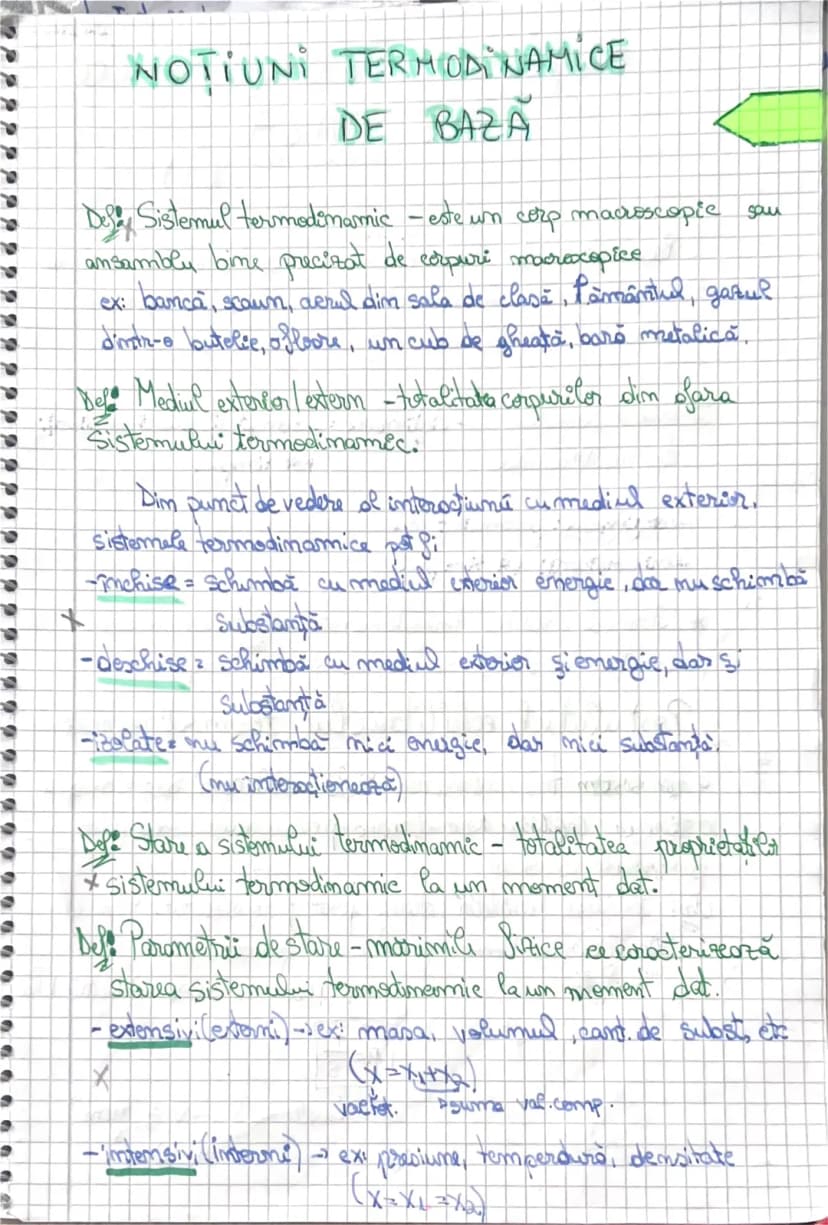 NOȚIUNI TERMODINAMICE
DE BAZĂ
Def: Sistemul termodinamic - este un corp macroscopic sau
ansamblu bine precizat de corpuri macroscopice
ex: bancă, scaun, aerul din sala de clasă, Pământul, gazul
dintr-o butelie, o floare, un cub de gheață, bară metalică.
Def: Mediul exterior/extern - totalitatea corpurilor din afara
Sistemului termodinamic.
Din punct de vedere al interacțiunii cu mediul exterior,
sistemele termodinamice pot fi
-închise = schimbă cu mediul exterior energie, dar nu schimbă
substanță
-deschise = schimbă cu mediul exterior și energie, dar și
substanță
-izolate = nu schimbă nici energie, dar nici substanță.
(nu interacționează)
Def: Stare a sistemului termodinamic - totalitatea proprietăților
x sistemului termodinamic la un moment dat.
Def: Parametrii de stare - mărimile fizice ce caracterizează
starea sistemului termodinamic la un moment dat.
- extensivi (externi) -> ex: masa, volumul, cant. de subst, etc
(x = x1 + x2)
suma val. comp.
- intensivi (interni) -> ex: presiune, temperatură, densitate
(x = x1 = x2)